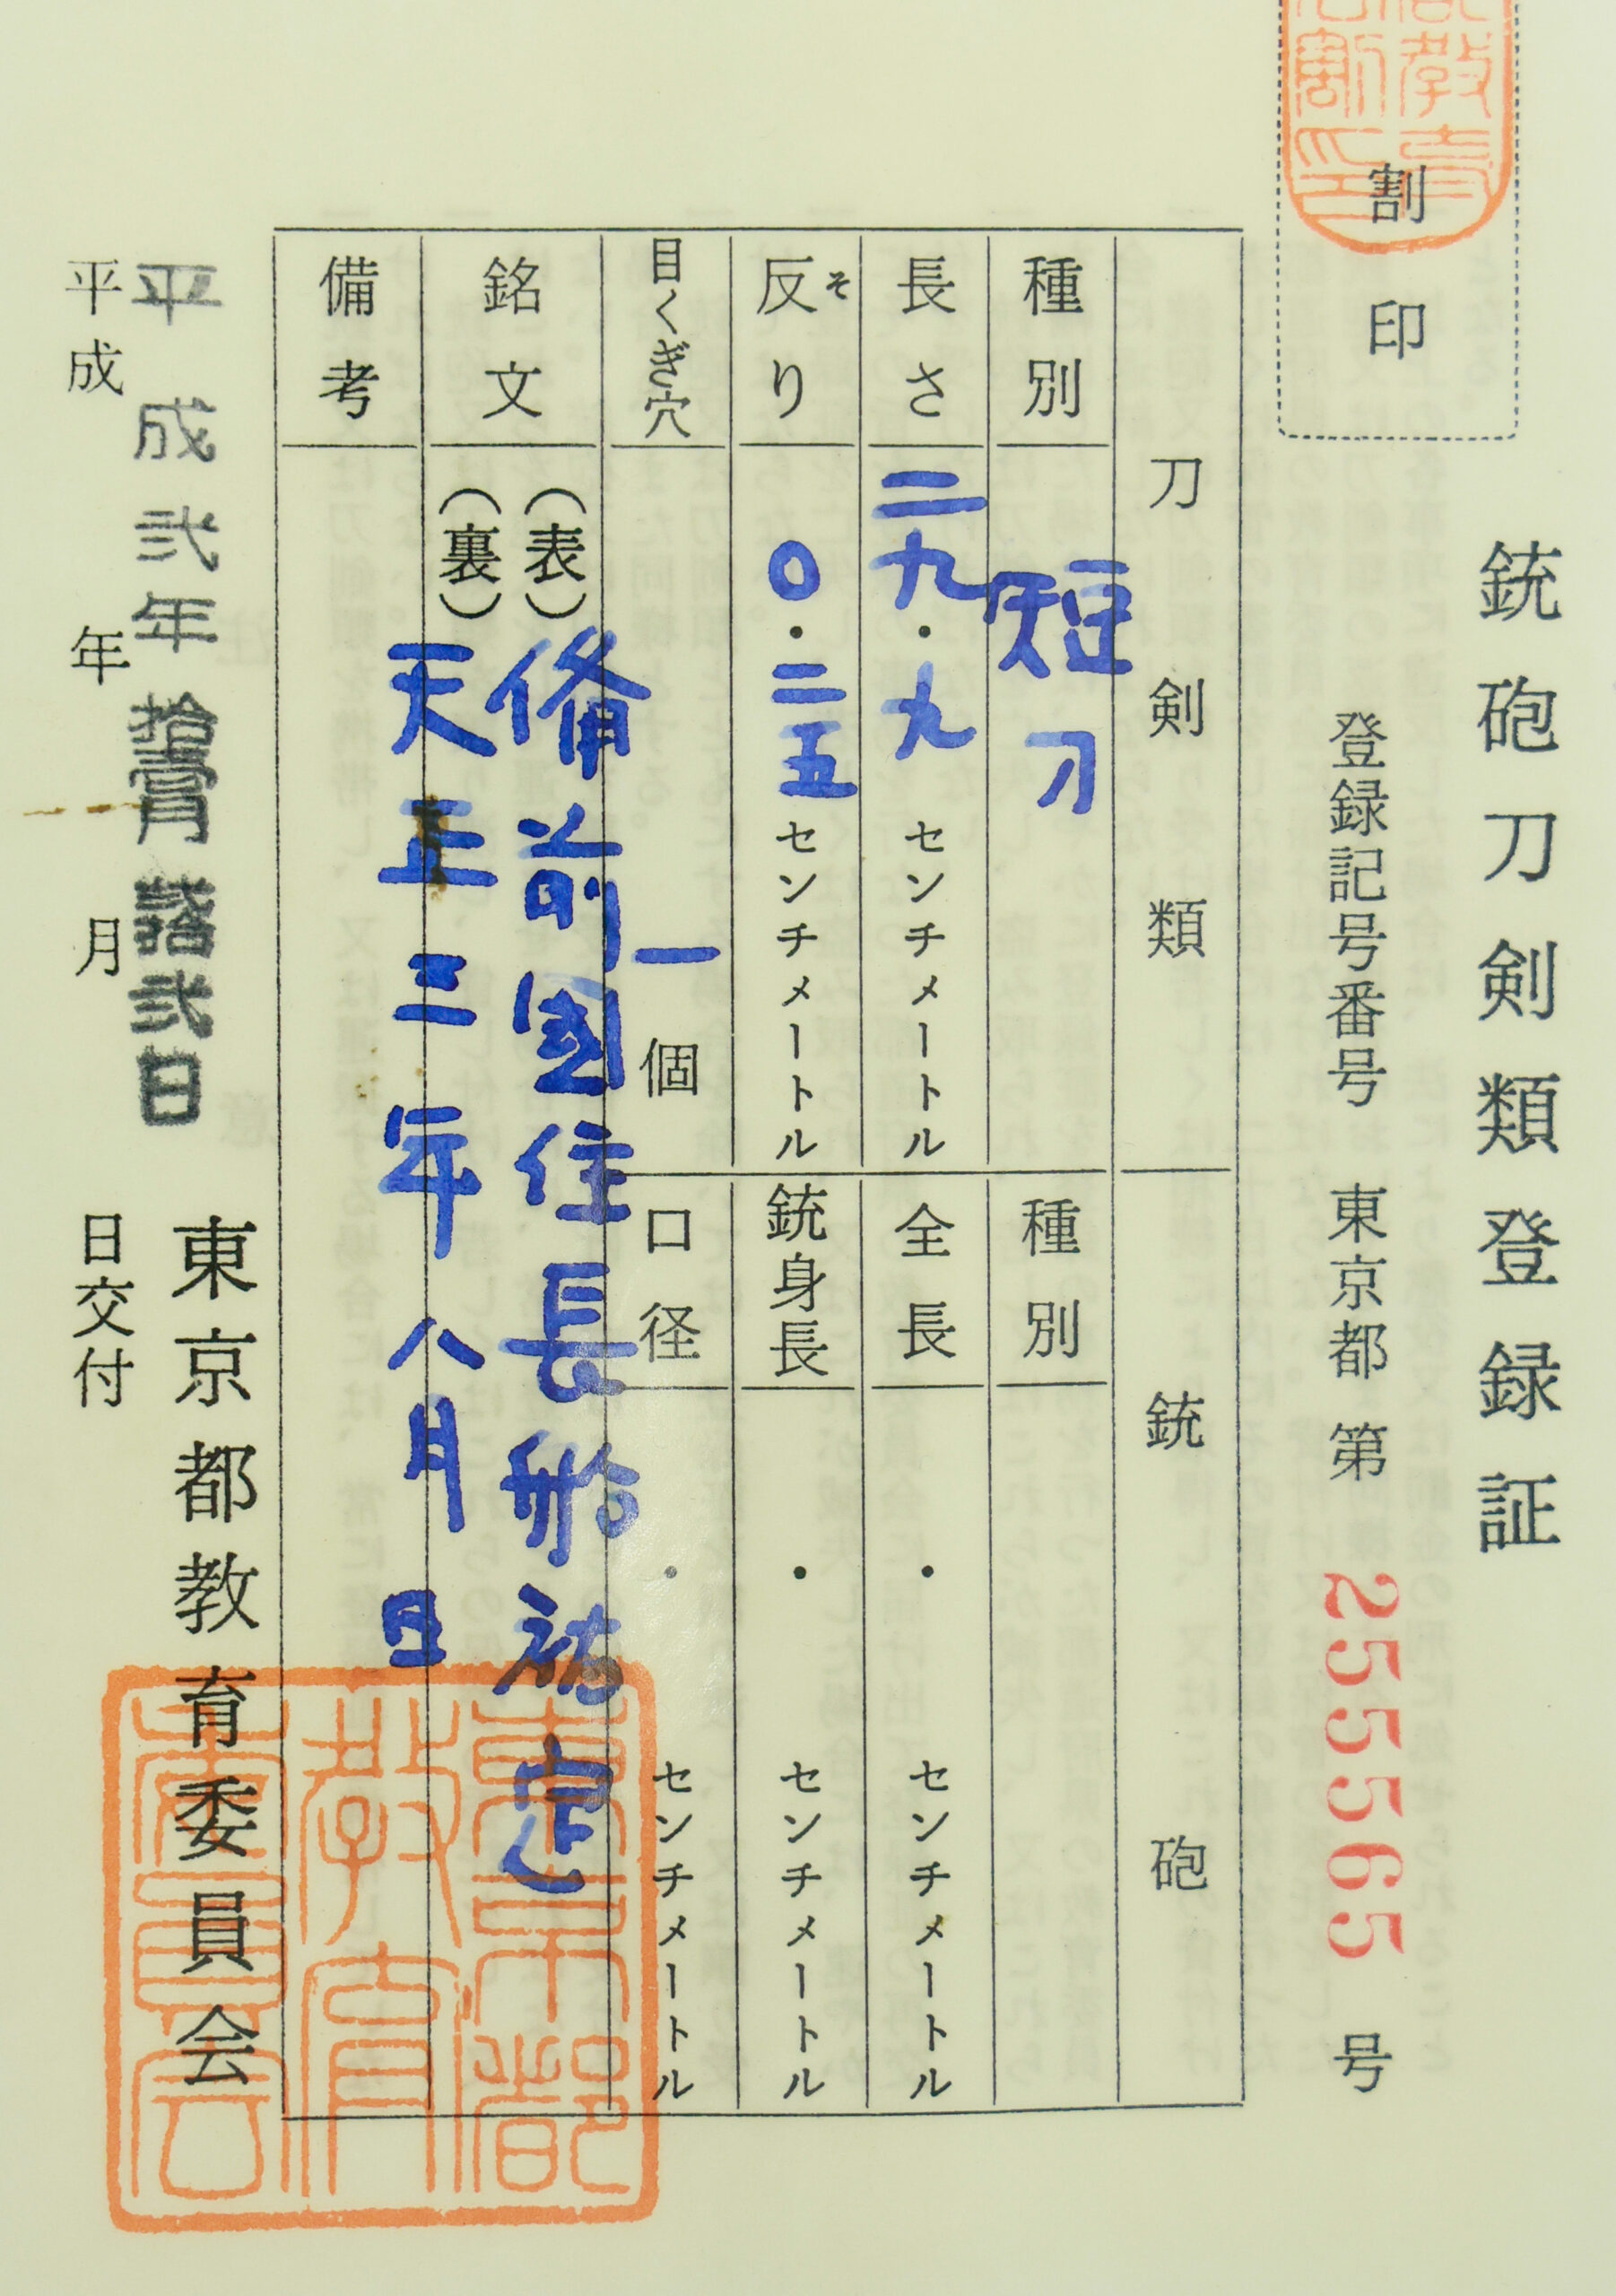 割印
銃砲刀剣類登録証
登録記号番号 東京都 第 255565 号
刀剣類
種別 短刀
長さ 二九・九 センチメートル
反り そ 〇・二五 センチメートル
目くぎ穴 一 個
銘文
(表) 備前國住長船祐定
(裏) 天正三年八月日
備考
銃砲
種別
全長 ・ センチメートル
銃身長 ・ センチメートル
口径 ・ センチメートル
平成弐年拾月 弐日
平成 年 月 日交付
東京都教育委員会
東京都教育委員会